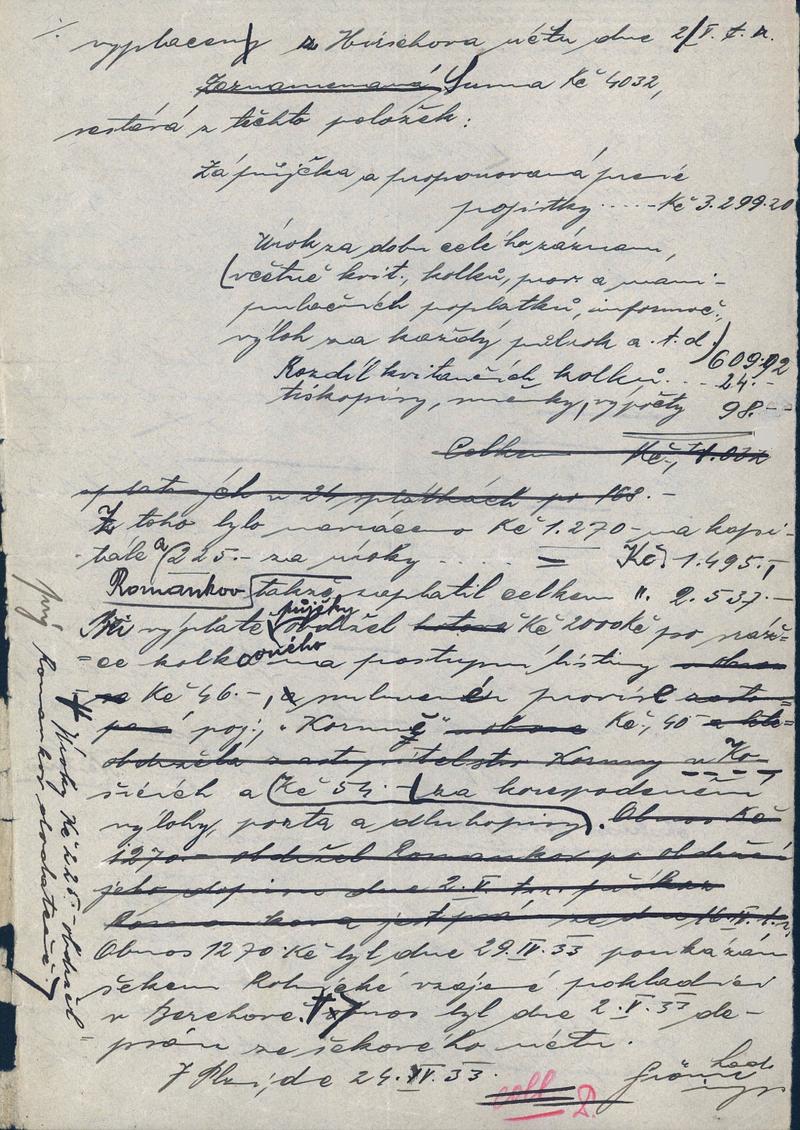 vyplacený z Hirschova účtu dne 2/V. t. r.
Zaznamenaná Suma Kč 4032,
sestává z těchto položek:
Zápůjčka a proponovaná prvé
pojistky ..... Kč 3.299.20
Úrok za dobu celého záznam,
(včetně kvit., kolků, por. a mani-
pulačních poplatků, informač.,
výloh za každý půlrok a. t. d.) 609.92
Rozdíl kvitančních kolků... 24.-
tiskopisy, směnky, výpočty 98.--
Celkem Kč, 4.032
splatných v 24 splátkách po 168.-
Z toho bylo navráceno Kč 1.270- na kapi-
tále a 225.- za úroky .... = Kč 1.495.-
Romankov takže zaplatil celkem ". 2.537.-
Při výplatě půjčky obdržel Kč 2000Kč po sráž=
ce kolkového na postupní listiny
Kč 46.-, a smluvené provise
poj. "Koruně" Kč, 40
obdržela zastupitelstvo Koruny v Ko-
šicích a (Kč 54.-) za korespodenční
výlohy, porta a dluhopisy. Obnos Kč
1270.- obdržel Romankov po obdržení
jeho dopisu dne 2.V. t.r.
Obnos 1270 Kč byl dne 29.IV.33 poukázán
šekem Rolnické vzájené pokladnici
v Berehově. +) Obnos byl dne 2.V.33 de-
psán ze šekového účtu.
V Plzni, dne 24.VI.33.
+ Úroky Kč 225.- obdržel
prý Romankov dodatečně.